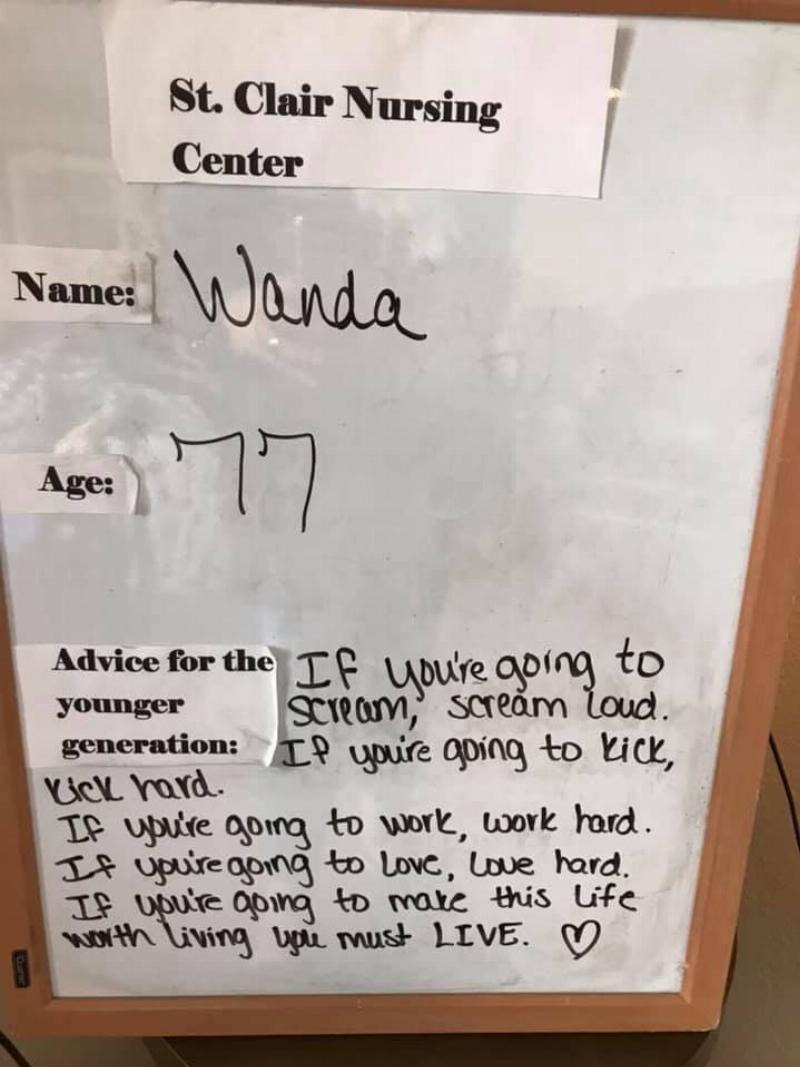 St. Clair Nursing
Center
Name: Wanda
Age: 77
Advice for the
younger
generation:
If you're going to
scream, scream loud.
If you're going to kick,
kick hard.
If you're going to work, work hard.
If you're going to love, love hard.
If you're going to make this life
worth living you must LIVE. ♡
Quartet